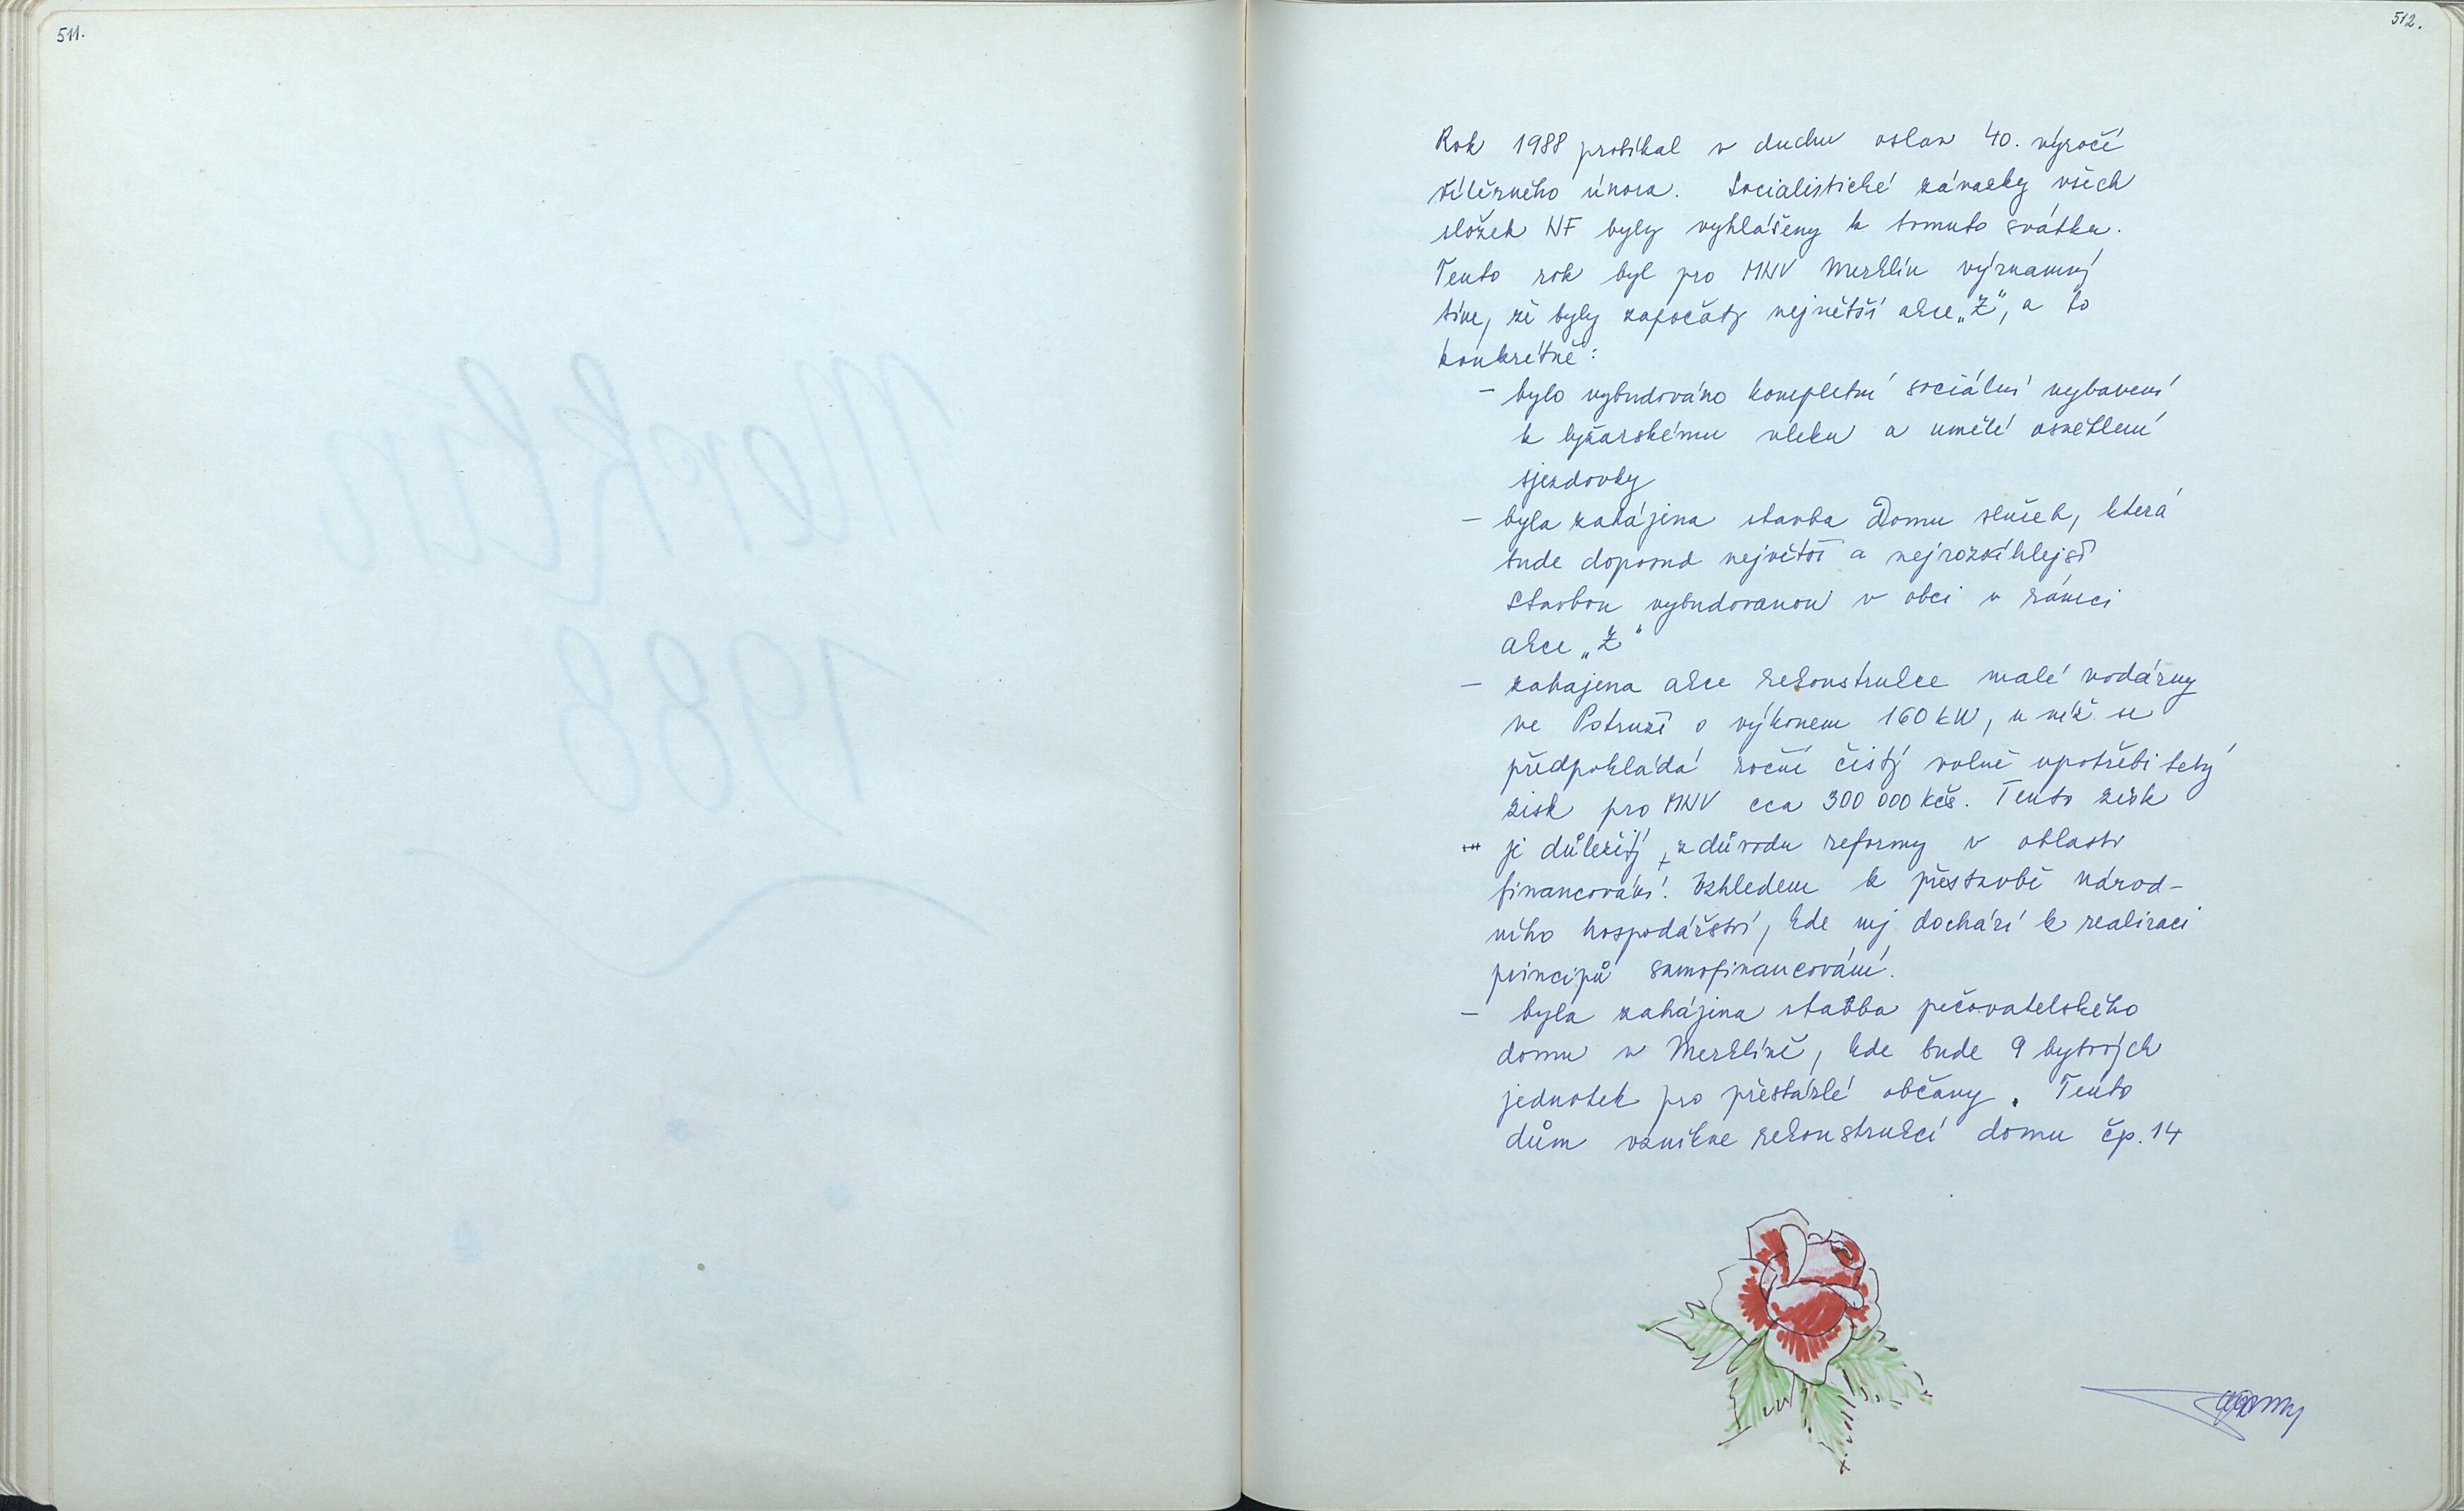 511.
512.
Rok 1988 probíhal v duchu oslav 40. výročí
Vítězného února. Socialistické závazky všech
složek NF byly vyhlášeny k tomuto svátku.
Tento rok byl pro MNV Merklín významný
tím, že byly započaty největší akce „Z", a to
konkrétně:
- bylo vybudováno kompletní sociální vybavení
k lyžařskému vleku a umělé osvětlení
sjezdovky
- byla zahájena stavba Domu služeb, která
bude doposud největší a nejrozsáhlejší
stavbou vybudovanou v obci v rámci
akce „Z"
- zahájena akce rekonstrukce malé vodárny
ve Pstruží o výkonem 160 kW, u níž se
předpokládá roční čistý volně upotřebitelný
zisk pro MNV cca 300 000 Kčs. Tento zisk
je důležitý z důvodu reformy v oblasti
financování. Vzhledem k přestavbě národ-
ního hospodářství, kde nyj dochází k realizaci
principů samofinancování.
- byla zahájena stavba pečovatelského
domu v Merklíně, kde bude 9 bytových
jednotek pro přestárlé občany. Tento
dům vznikne rekonstrukcí domu čp. 14